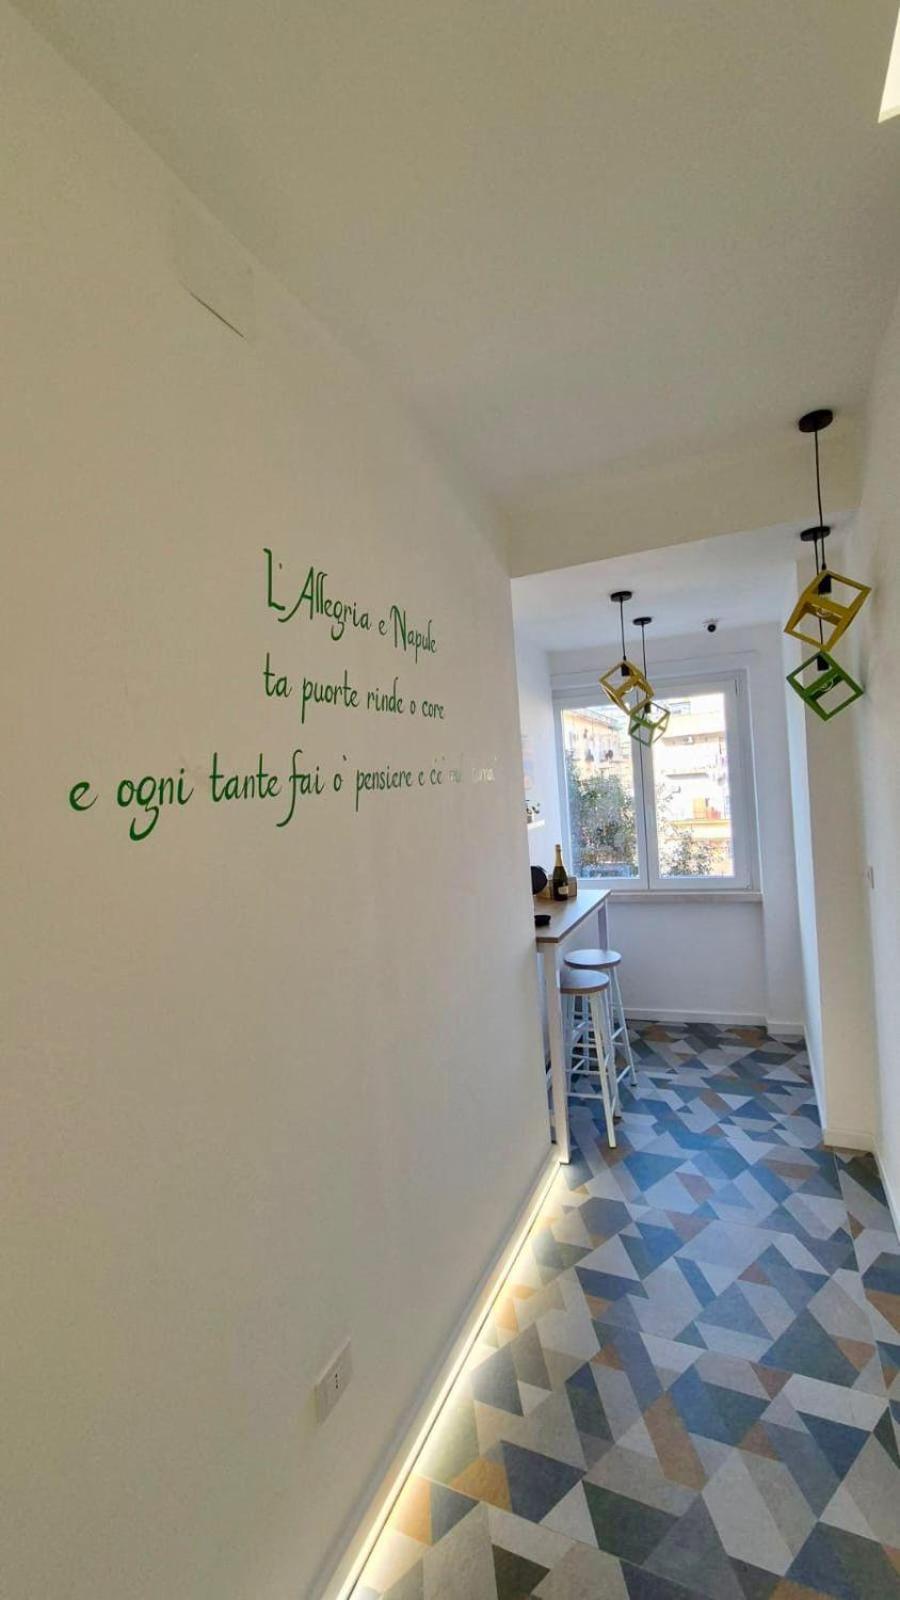 L'Allegria e Napule
ta puorte rinde o core
e ogni tante fai o' pensiere e c'è